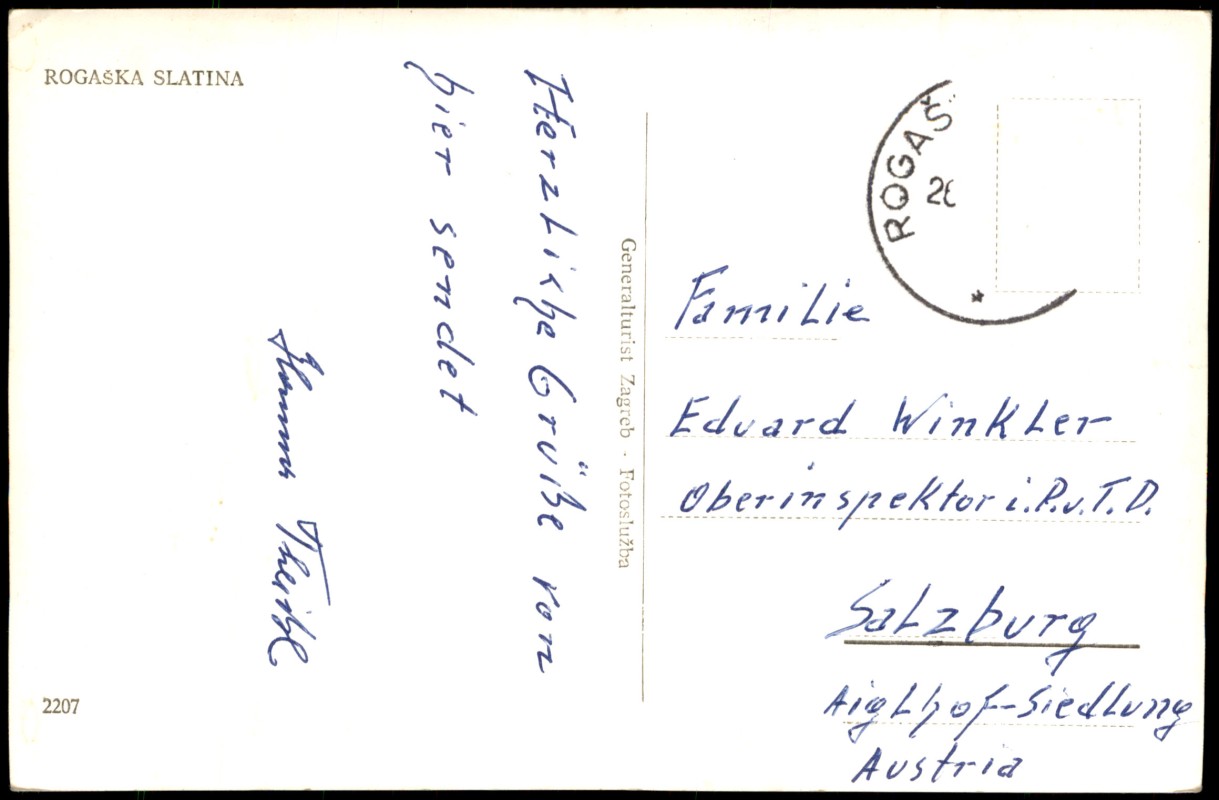 ROGAŠKA SLATINA
Herzliche Grüße von
hier sendet
2207
Generalturist Zagreb · Fotoslužba
ROGAŠ
Familie
Eduard Winkler
Oberinspektor i.P.u.T.D.
Salzburg
Aiglhof-Siedlung
Austria